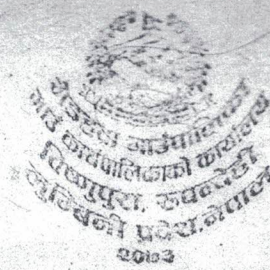 गाउँपालिका
गाउँ कार्यपालिकाको कार्यालय
विष्णुपुरा, रुपन्देही
लुम्बिनी प्रदेश, नेपाल
२०७३